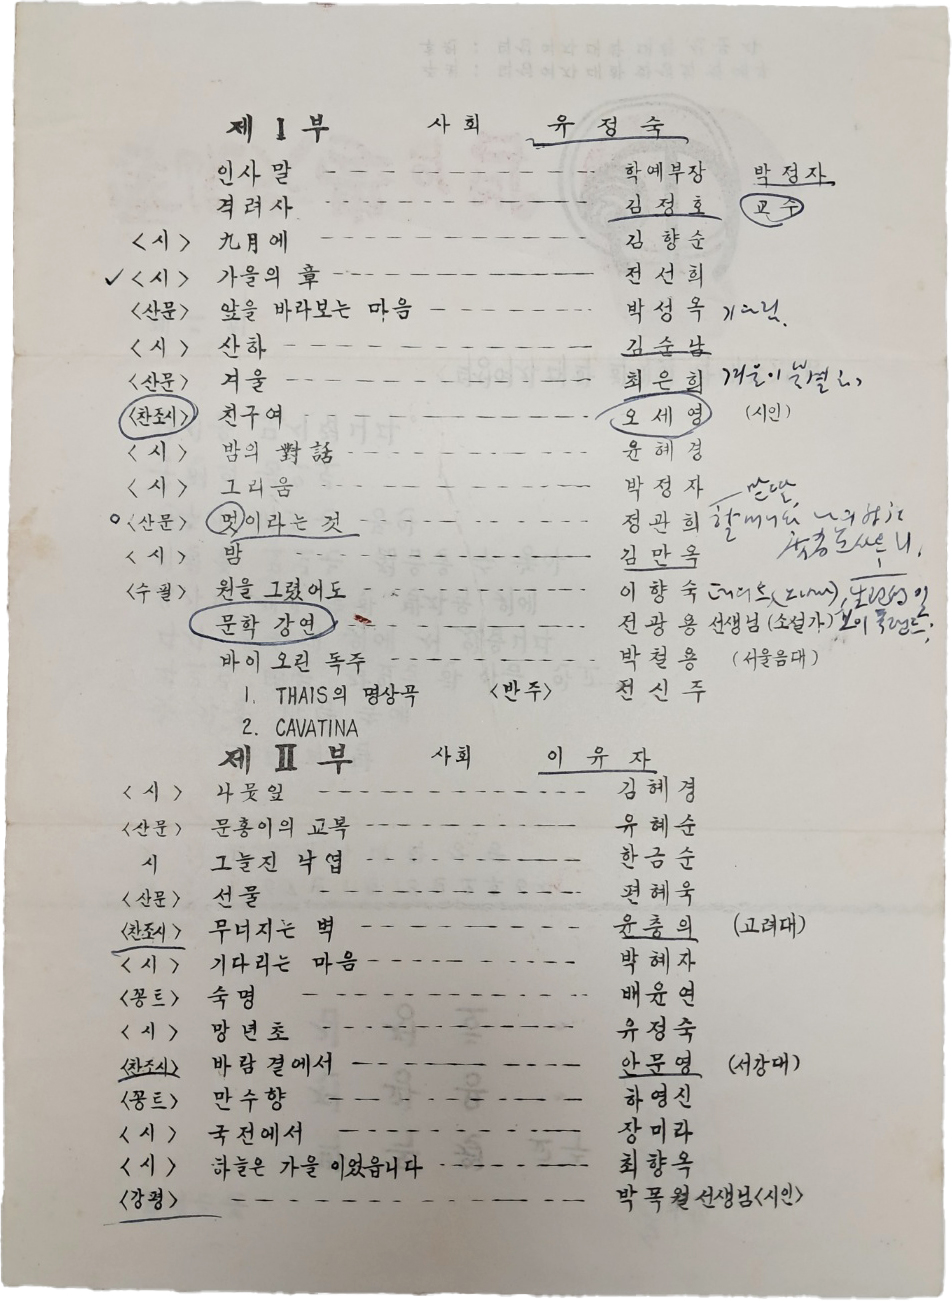 제 I 부 사회 유 정 숙
인사 말 학예부장 박 정 자
격 려 사 김 정 호 교 수
〈시〉 九月에 김 향 순
✓〈시〉 가을의 章 전 선 희
〈산문〉 앞을 바라보는 마음 박 성 옥
〈시〉 산하 김 순 남
〈산문〉 겨울 최 은 희
〈찬조시〉 친구여 오 세 영 (시인)
〈시〉 밤의 對話 윤 혜 경
〈시〉 그리움 박 정 자
〈산문〉 멋이라는 것 정 관 희
〈시〉 밤 김 만 옥
〈수필〉 원을 그렸어도 이 향 숙
문학 강연 전 광 용 선생님 (소설가)
바이 오린 독주 박 철 용 (서울음대)
1. THAIS의 명상곡 〈반주〉 전 신 주
2. CAVATINA
제 II 부 사회 이 유 자
〈시〉 나뭇잎 김 혜 경
〈산문〉 문홍이의 교복 유 혜 순
시 그늘진 낙엽 한 금 순
〈산문〉 선물 편 혜 욱
〈찬조시〉 무너지는 벽 윤 충 의 (고려대)
〈시〉 기다리는 마음 박 혜 자
〈꽁트〉 숙명 배 윤 연
〈시〉 망년초 유 정 숙
〈찬조시〉 바람 결에서 안 문 영 (서강대)
〈꽁트〉 만수향 하 영 신
〈시〉 국전에서 장 미 라
〈시〉 하늘은 가을 이었읍니다 최 향 옥
〈강평〉 박 목 월 선생님〈시인〉